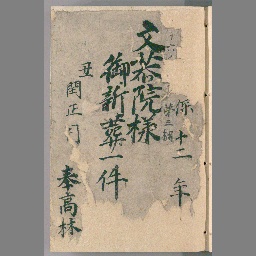 保十二年
文恭院様
御新葬一件
丑
閏正月
奉高林